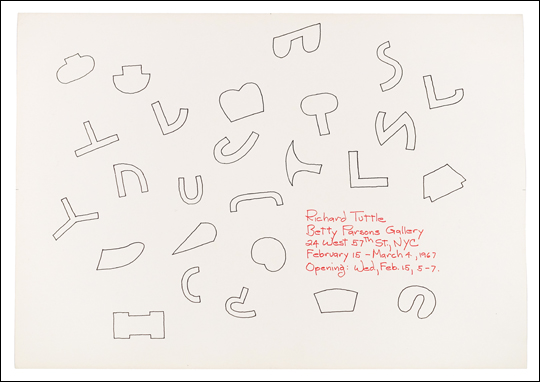 Richard Tuttle
Betty Parsons Gallery
24 West 57th St., NYC
February 15 – March 4, 1967
Opening: Wed, Feb. 15, 5-7.